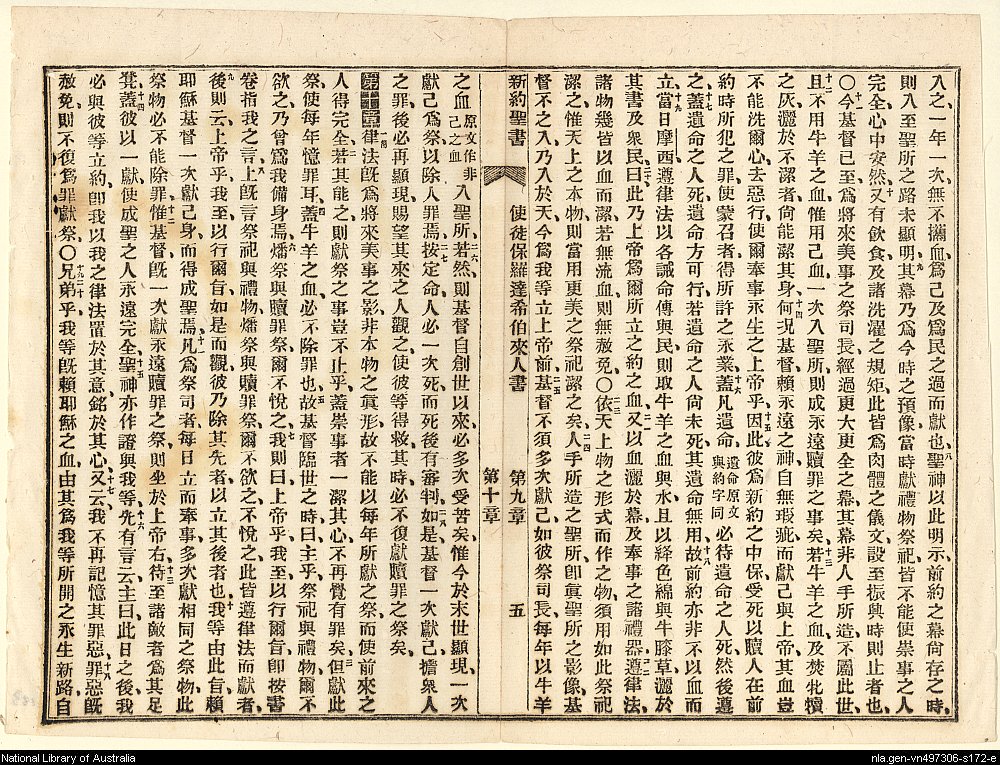 入之一年一次無不攜血爲己及爲民之過而獻也聖神以此明示前約之幕尚存之時
則入至聖所之路未顯明其幕乃爲今時之預像當時獻禮物祭祀皆不能使崇事之人
完全心中安然又有飲食及諸洗濯之規矩此皆爲肉體之儀文設至振興時則止者也
○今基督已至爲將來美事之祭司長經過更大更全之幕其幕非人手所造不屬此世
且不用牛羊之血惟用己血一次入聖所則成永遠贖罪之事矣若牛羊之血及焚牝犢
之灰灑於不潔者尚能潔其身何況基督賴永遠之神自無瑕疵而獻己與上帝其血豈
不能洗爾心去惡行使爾奉事永生之上帝乎因此彼爲新約之中保受死以贖人在前
約時所犯之罪使蒙召者得所許之永業蓋凡遺命遺命原文與約字同必待遺命之人死然後遵
之蓋遺命之人死遺命方可行若遺命之人尚未死其遺命無用故前約亦非不以血而
立當日摩西遵律法以各誡命傳與民則取牛羊之血與水且以絳色綿與牛膝草灑於
其書及衆民曰此乃上帝爲爾所立之約之血又以血灑於幕及奉事之諸禮器遵律法
諸物幾皆以血而潔若無流血則無赦免○依天上物之形式而作之物須用如此祭祀
潔之惟天上之本物則當用更美之祭祀潔之矣人手所造之聖所卽眞聖所之影像基
督不之入乃入於天今爲我等立上帝前基督不須多次獻己如彼祭司長每年以牛羊
新約聖書 使徒保羅達希伯來人書 第九章 第十章 五
之血原文作非己之血入聖所若然則基督自創世以來必多次受苦矣惟今於末世顯現一次
獻己爲祭以除人罪焉按定命人必一次死而死後有審判如是基督一次獻己擔衆人
之罪後必再顯現賜望其來之人觀之使彼等得救其時必不復獻贖罪之祭矣
第十章律法旣爲將來美事之影非本物之眞形故不能以每年所獻之祭而使前來之
人得完全若其能之則獻祭之事豈不止乎蓋崇事者一潔其心不再覺有罪矣但獻此
祭使每年憶罪耳蓋牛羊之血必不除罪也故基督臨世之時曰主乎祭祀與禮物爾不
欲之乃曾爲我備身焉燔祭與贖罪祭爾不悅之我則曰上帝乎我至以行爾旨卽按書
卷指我之言上旣言祭祀與禮物燔祭與贖罪祭爾不欲之不悅之此皆遵律法而獻者
後則云上帝乎我至以行爾旨如是而觀彼乃除其先者以立其後者也我等由此旨賴
耶穌基督一次獻己身而得成聖焉凡爲祭司者每日立而奉事多次獻相同之祭物此
祭物必不能除罪惟基督旣一次獻永遠贖罪之祭則坐於上帝右待至諸敵者爲其足
凳蓋彼以一獻使成聖之人永遠完全聖神亦作證與我等先有言云主曰此日之後我
必與彼等立約卽我以我之律法置於其意銘於其心又云我不再記憶其罪惡罪惡旣
赦免則不復爲罪獻祭○兄弟乎我等旣賴耶穌之血由其爲我等所開之永生新路自
National Library of Australia
nla.gen-vn497306-s172-e